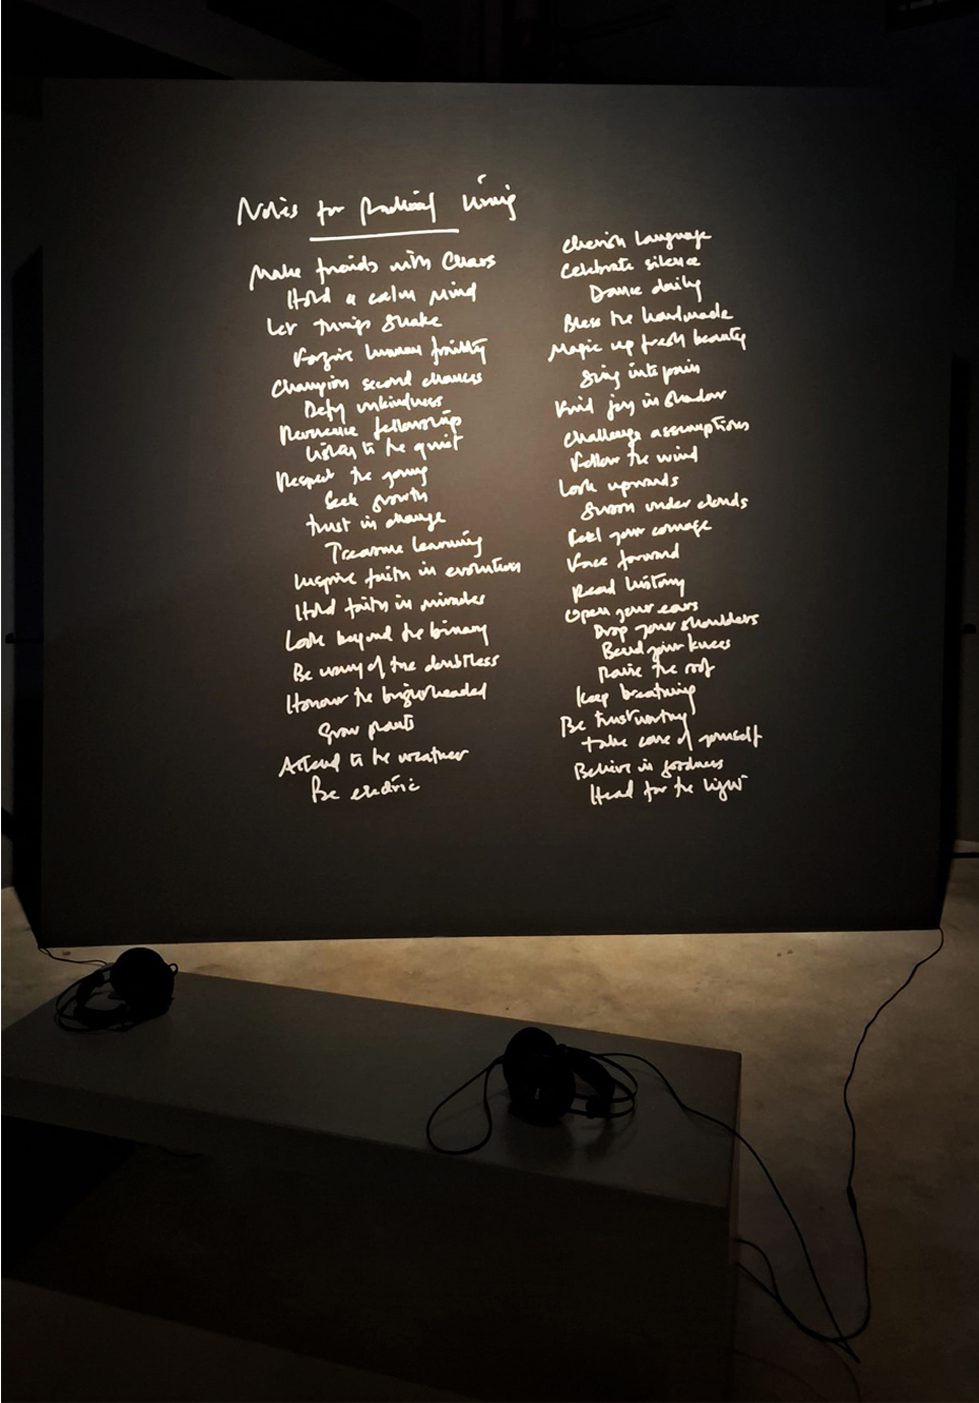 Notes for Radical Living
Make friends with Chaos
Hold a calm mind
Let things shake
Forgive human frailty
Champion second chances
Defy unkindness
Reverence fellowship
Listen to the quiet
Respect the young
Seek growth
Trust in change
Treasure learning
Inspire faith in evolution
Hold faith in miracles
Look beyond the binary
Be wary of the doubtless
Honour the
Grow plants
Attend to the weather
Be electric
Cherish Language
Celebrate silence
Dance daily
Bless the handmade
Magic up fresh beauty
Sing into pain
Find joy in shadow
Challenge assumptions
Follow the wind
Look upwards
Swoon under clouds
Feel your courage
Face forward
Read history
Open your ears
Drop your shoulders
Bend your knees
Raise the roof
Keep breathing
Be trustworthy
Take care of yourself
Believe in goodness
Head for the light